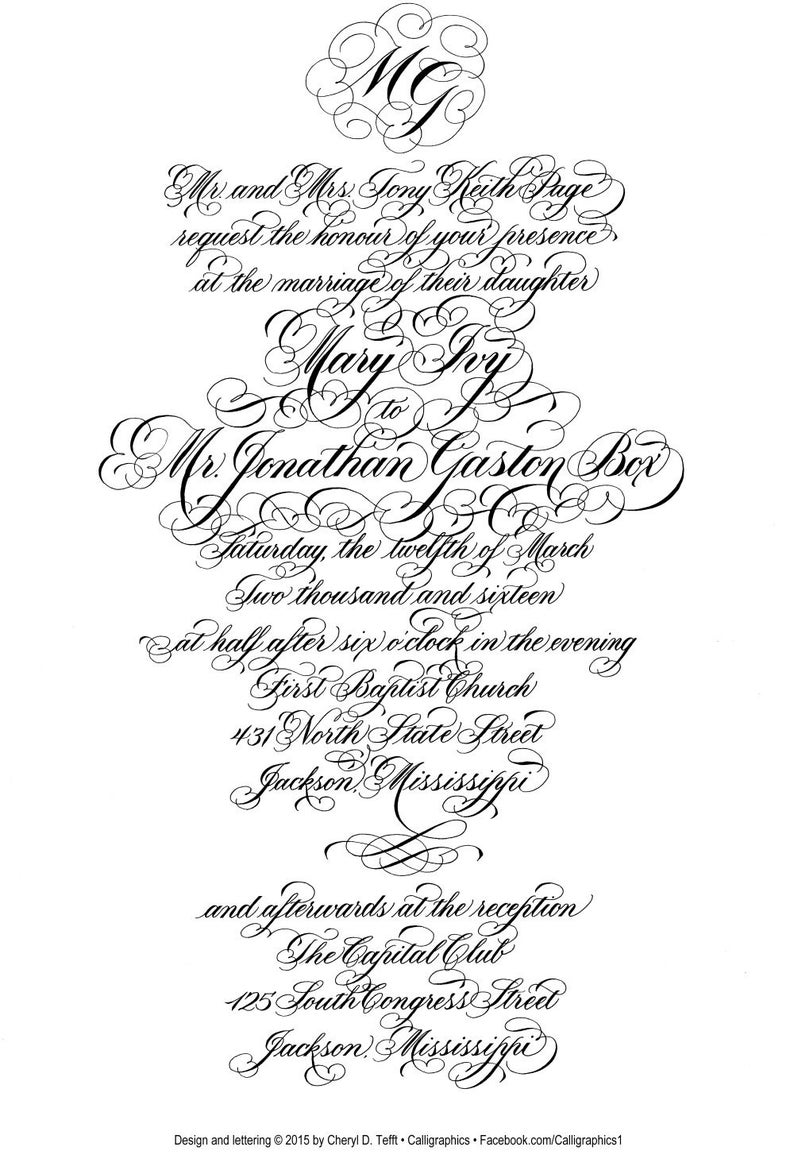 MG
Mr. and Mrs. Tony Keith Page
request the honour of your presence
at the marriage of their daughter
Mary Ivy
to
Mr. Jonathan Gaston Box
Saturday, the twelfth of March
Two thousand and sixteen
at half after six o'clock in the evening
First Baptist Church
431 North State Street
Jackson, Mississippi
and afterwards at the reception
The Capital Club
125 South Congress Street
Jackson, Mississippi
Design and lettering © 2015 by Cheryl D. Tefft • Calligraphics • Facebook.com/Calligraphics1